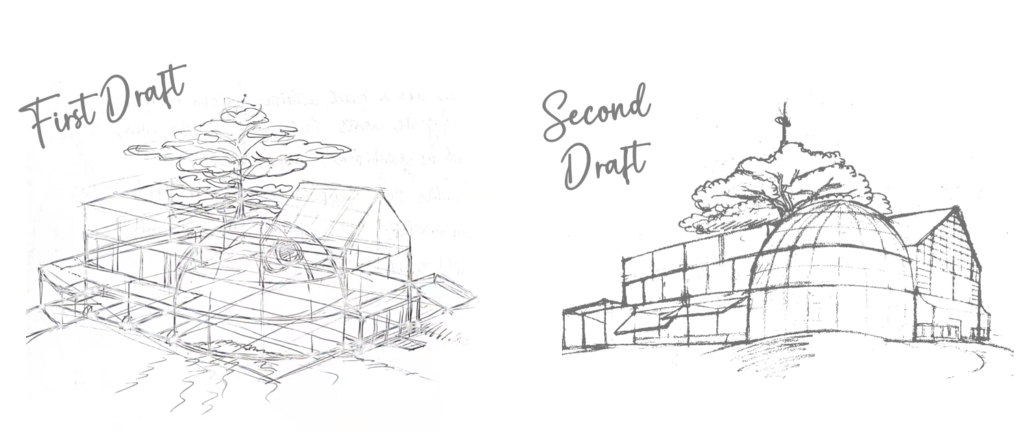 First Draft
Second
Draft